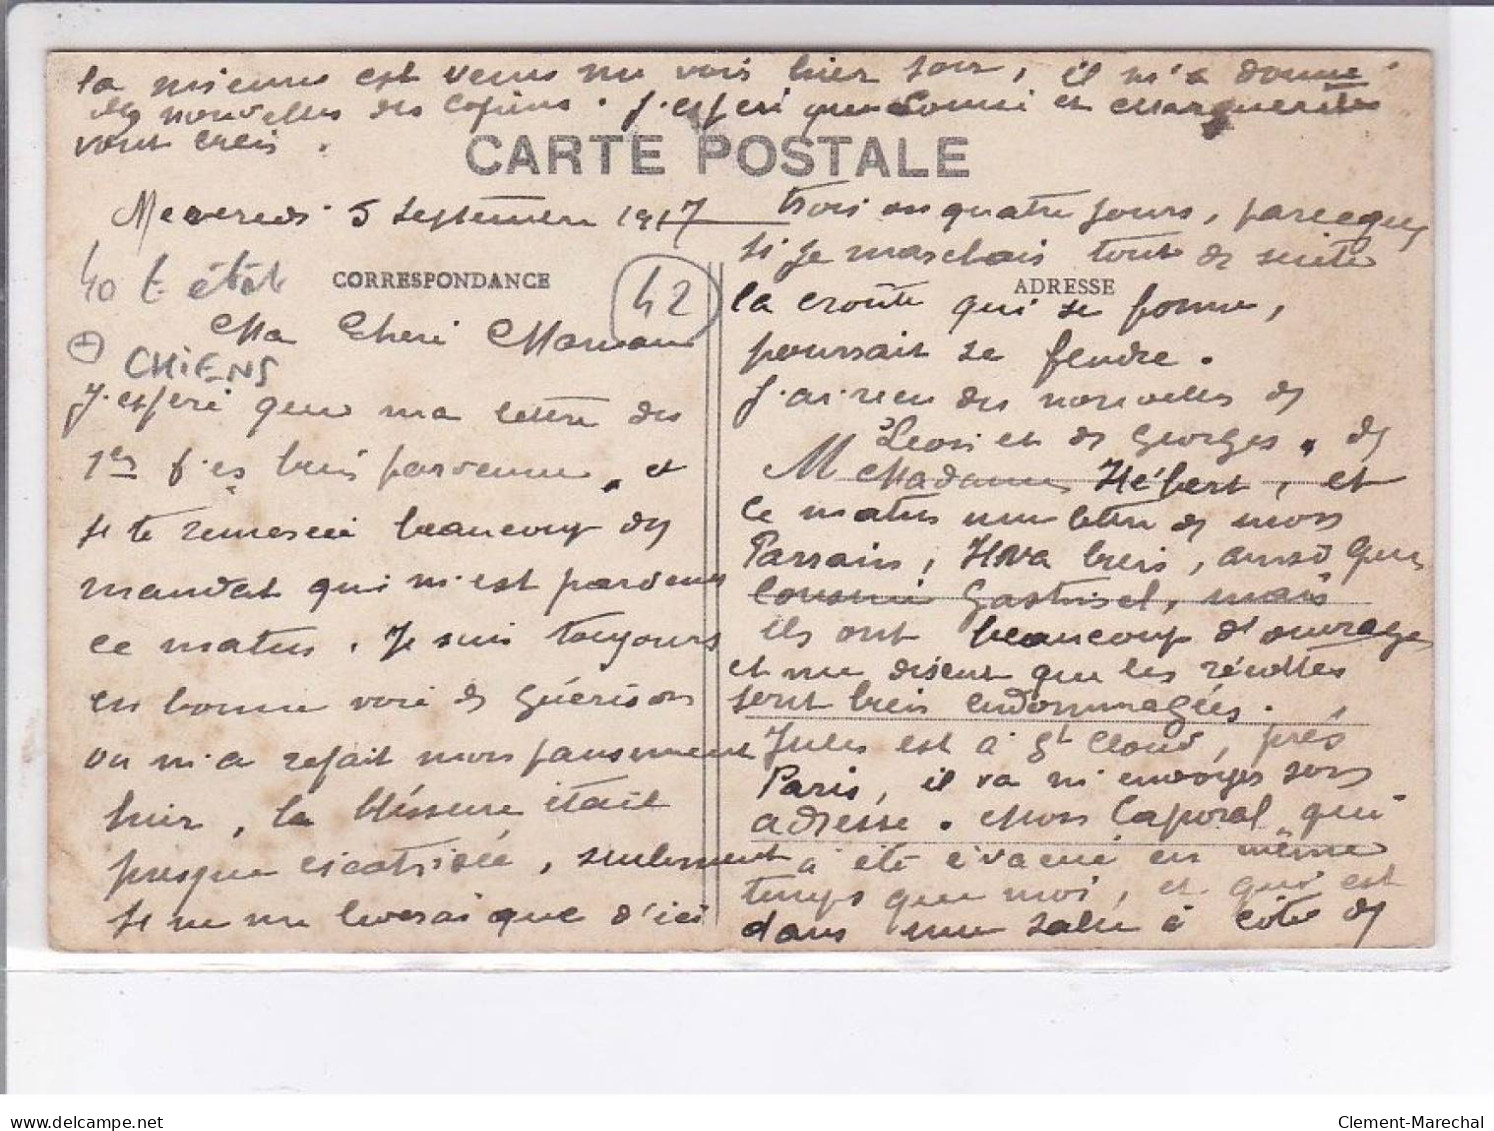 la mienne est venu me voir hier soir, il m'a donné
des nouvelles des copains. J'espère que Louise et Marguerite
vont bien.
CARTE POSTALE
Mercredi 5 Septembre 1917
40 t état
CORRESPONDANCE
42
Ma Chère Maman
CHiENS
J'espère que ma lettre du
1er t'es bien parvenue, et
je te remercie beaucoup du
mandat qui m'est parvenu
ce matin. Je suis toujours
en bonne voie de guérison
on m'a refait mon pansement
hier, la bléssure était
presque cicatrisée, seulement
je ne me leverai que d'ici
trois ou quatre jours, parceque
si je marchais tout de suite
ADRESSE
la croûte qui se forme,
pourrait se fendre.
J'ai reçu des nouvelles de
Léon et de Georges, de
M Madame Hébert, et
ce matin une lettre de mon
Parrain, il va bien, ainsi que
Cousine, mais
ils ont beaucoup d'ouvrage
et me disent que les récoltes
sont bien endommagées.
Jules est à St Cloud, près
Paris, il va m'envoyer son
adresse. Mon Caporal qui
a été évacué en même
temps que moi, et qui est
dans une salle à côté de
Clement-Marechal
delcampe.net